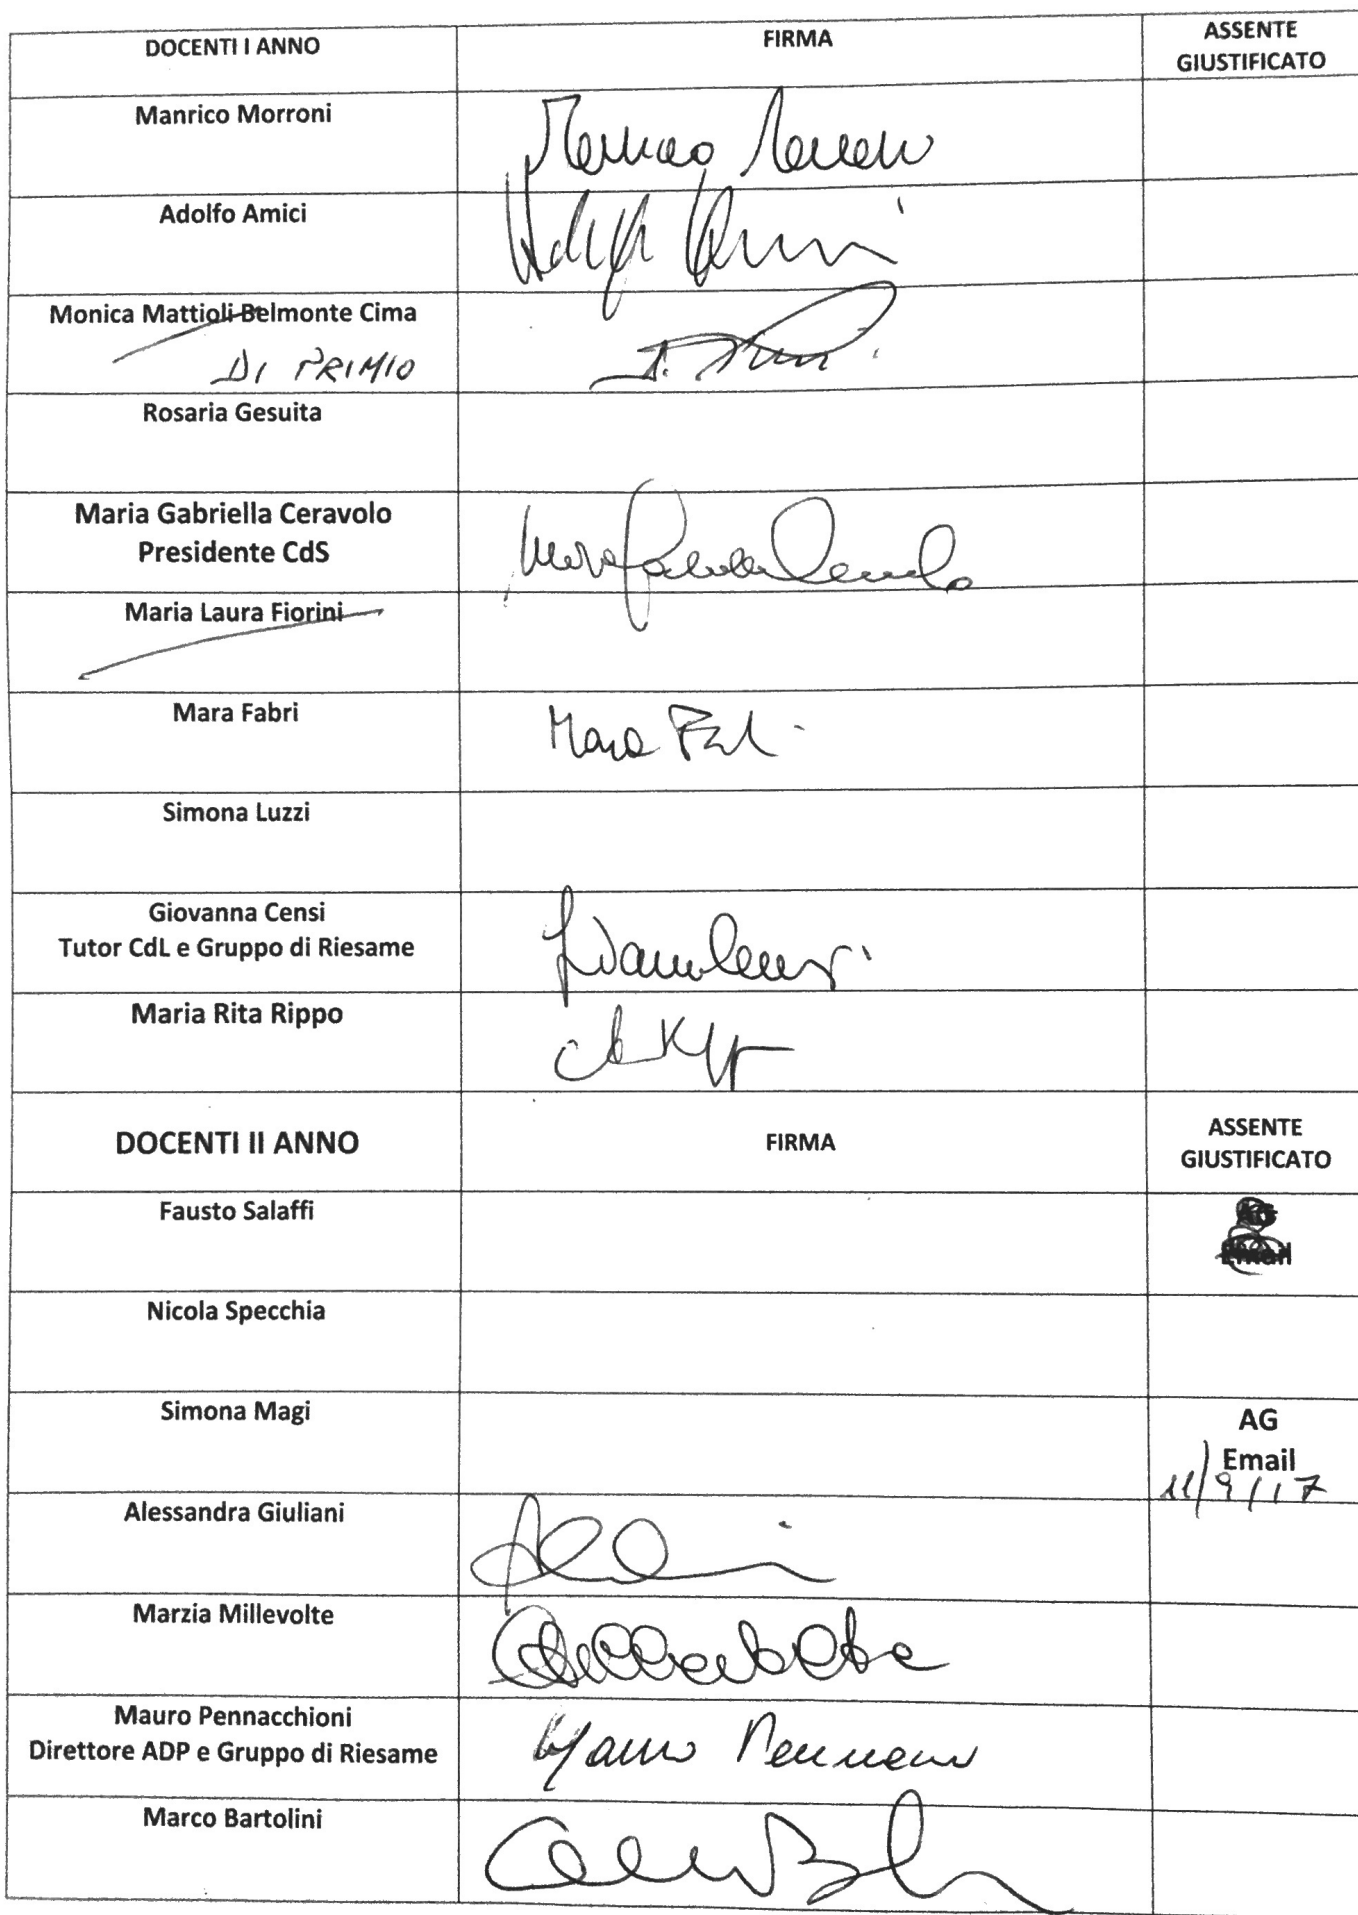 DOCENTI I ANNO FIRMA ASSENTE
GIUSTIFICATO
Manrico Morroni
Adolfo Amici
Monica Mattioli Belmonte Cima
DI PRIMIO
Rosaria Gesuita
Maria Gabriella Ceravolo
Presidente CdS
Maria Laura Fiorini
Mara Fabri
Simona Luzzi
Giovanna Censi
Tutor CdL e Gruppo di Riesame
Maria Rita Rippo
DOCENTI II ANNO FIRMA ASSENTE
GIUSTIFICATO
Fausto Salaffi
Email
Nicola Specchia
Simona Magi AG
Email
11/9/17
Alessandra Giuliani
Marzia Millevolte
Mauro Pennacchioni
Direttore ADP e Gruppo di Riesame
Marco Bartolini